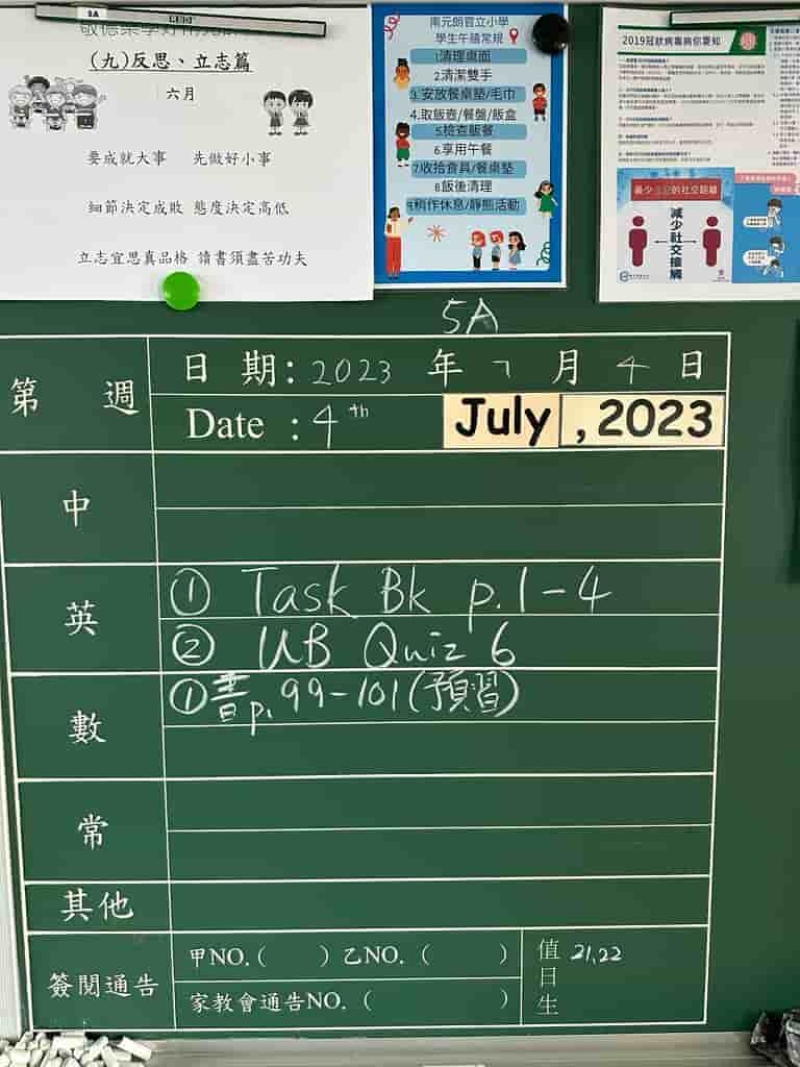 5A
敬德樂學好南元朗
(九)反思、立志篇
六月
要成就大事 先做好小事
細節決定成敗 態度決定高低
立志宜思真品格 讀書須盡苦功夫
南元朗官立小學
學生午膳常規
1.清理桌面
2.清潔雙手
3.安放餐桌墊/毛巾
4.取飯壺/餐盤/飯盒
5.檢查飯餐
6.享用午餐
7.收拾食具/餐桌墊
8.飯後清理
9.稍作休息/靜態活動
2019冠狀病毒病你要知
減少社交接觸
5A
第 週
日 期: 2023 年 7 月 4 日
Date : 4th July , 2023
中
英
① Task Bk p.1-4
② UB Quiz 6
數
①書p. 99-101(預習)
常
其他
簽閱通告
甲NO. ( ) 乙NO. ( )
家教會通告NO. ( )
值日生 21,22